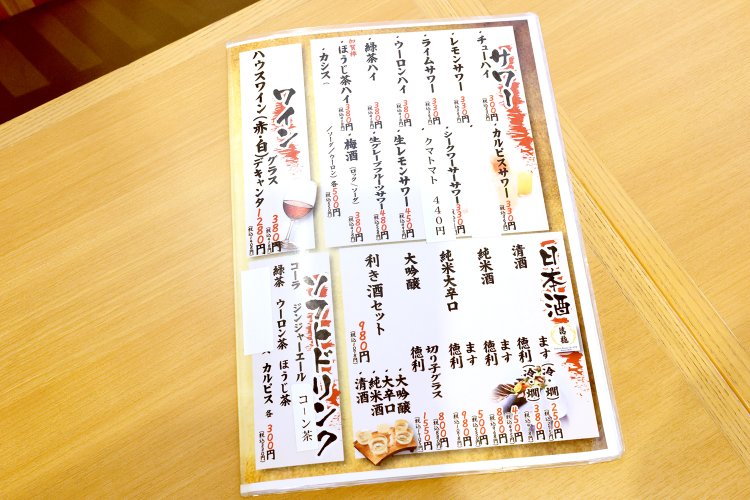 サワー
・チューハイ 300円
・レモンサワー 330円
・ライムサワー 330円
・ウーロンハイ 380円
・緑茶ハイ 380円
加賀棒
・ほうじ茶ハイ 380円
・カシス
・カルピスサワー 330円
・シークワーサーサワー 330円
クマトマト 440円
・生レモンサワー 450円
・生グレープフルーツサワー 480円
・梅酒（ロック／ソーダ） 380円
／ソーダ／ウーロン）各500円
ワイン
ハウスワイン（赤・白）グラス 380円
デキャンタ 1280円
日本酒
清酒 ます（冷・燗） 250円
徳利（冷・燗） 380円
純米酒 ます 450円
徳利 880円
純米大辛口 ます 500円
徳利 980円
大吟醸 切り子グラス 800円
徳利 1550円
利き酒セット 980円
・大吟醸
・大辛口
・純米酒
・清酒
ソフトドリンク
コーラ ジンジャーエール コーン茶
緑茶 ウーロン茶 ほうじ茶
カルピス 各300円